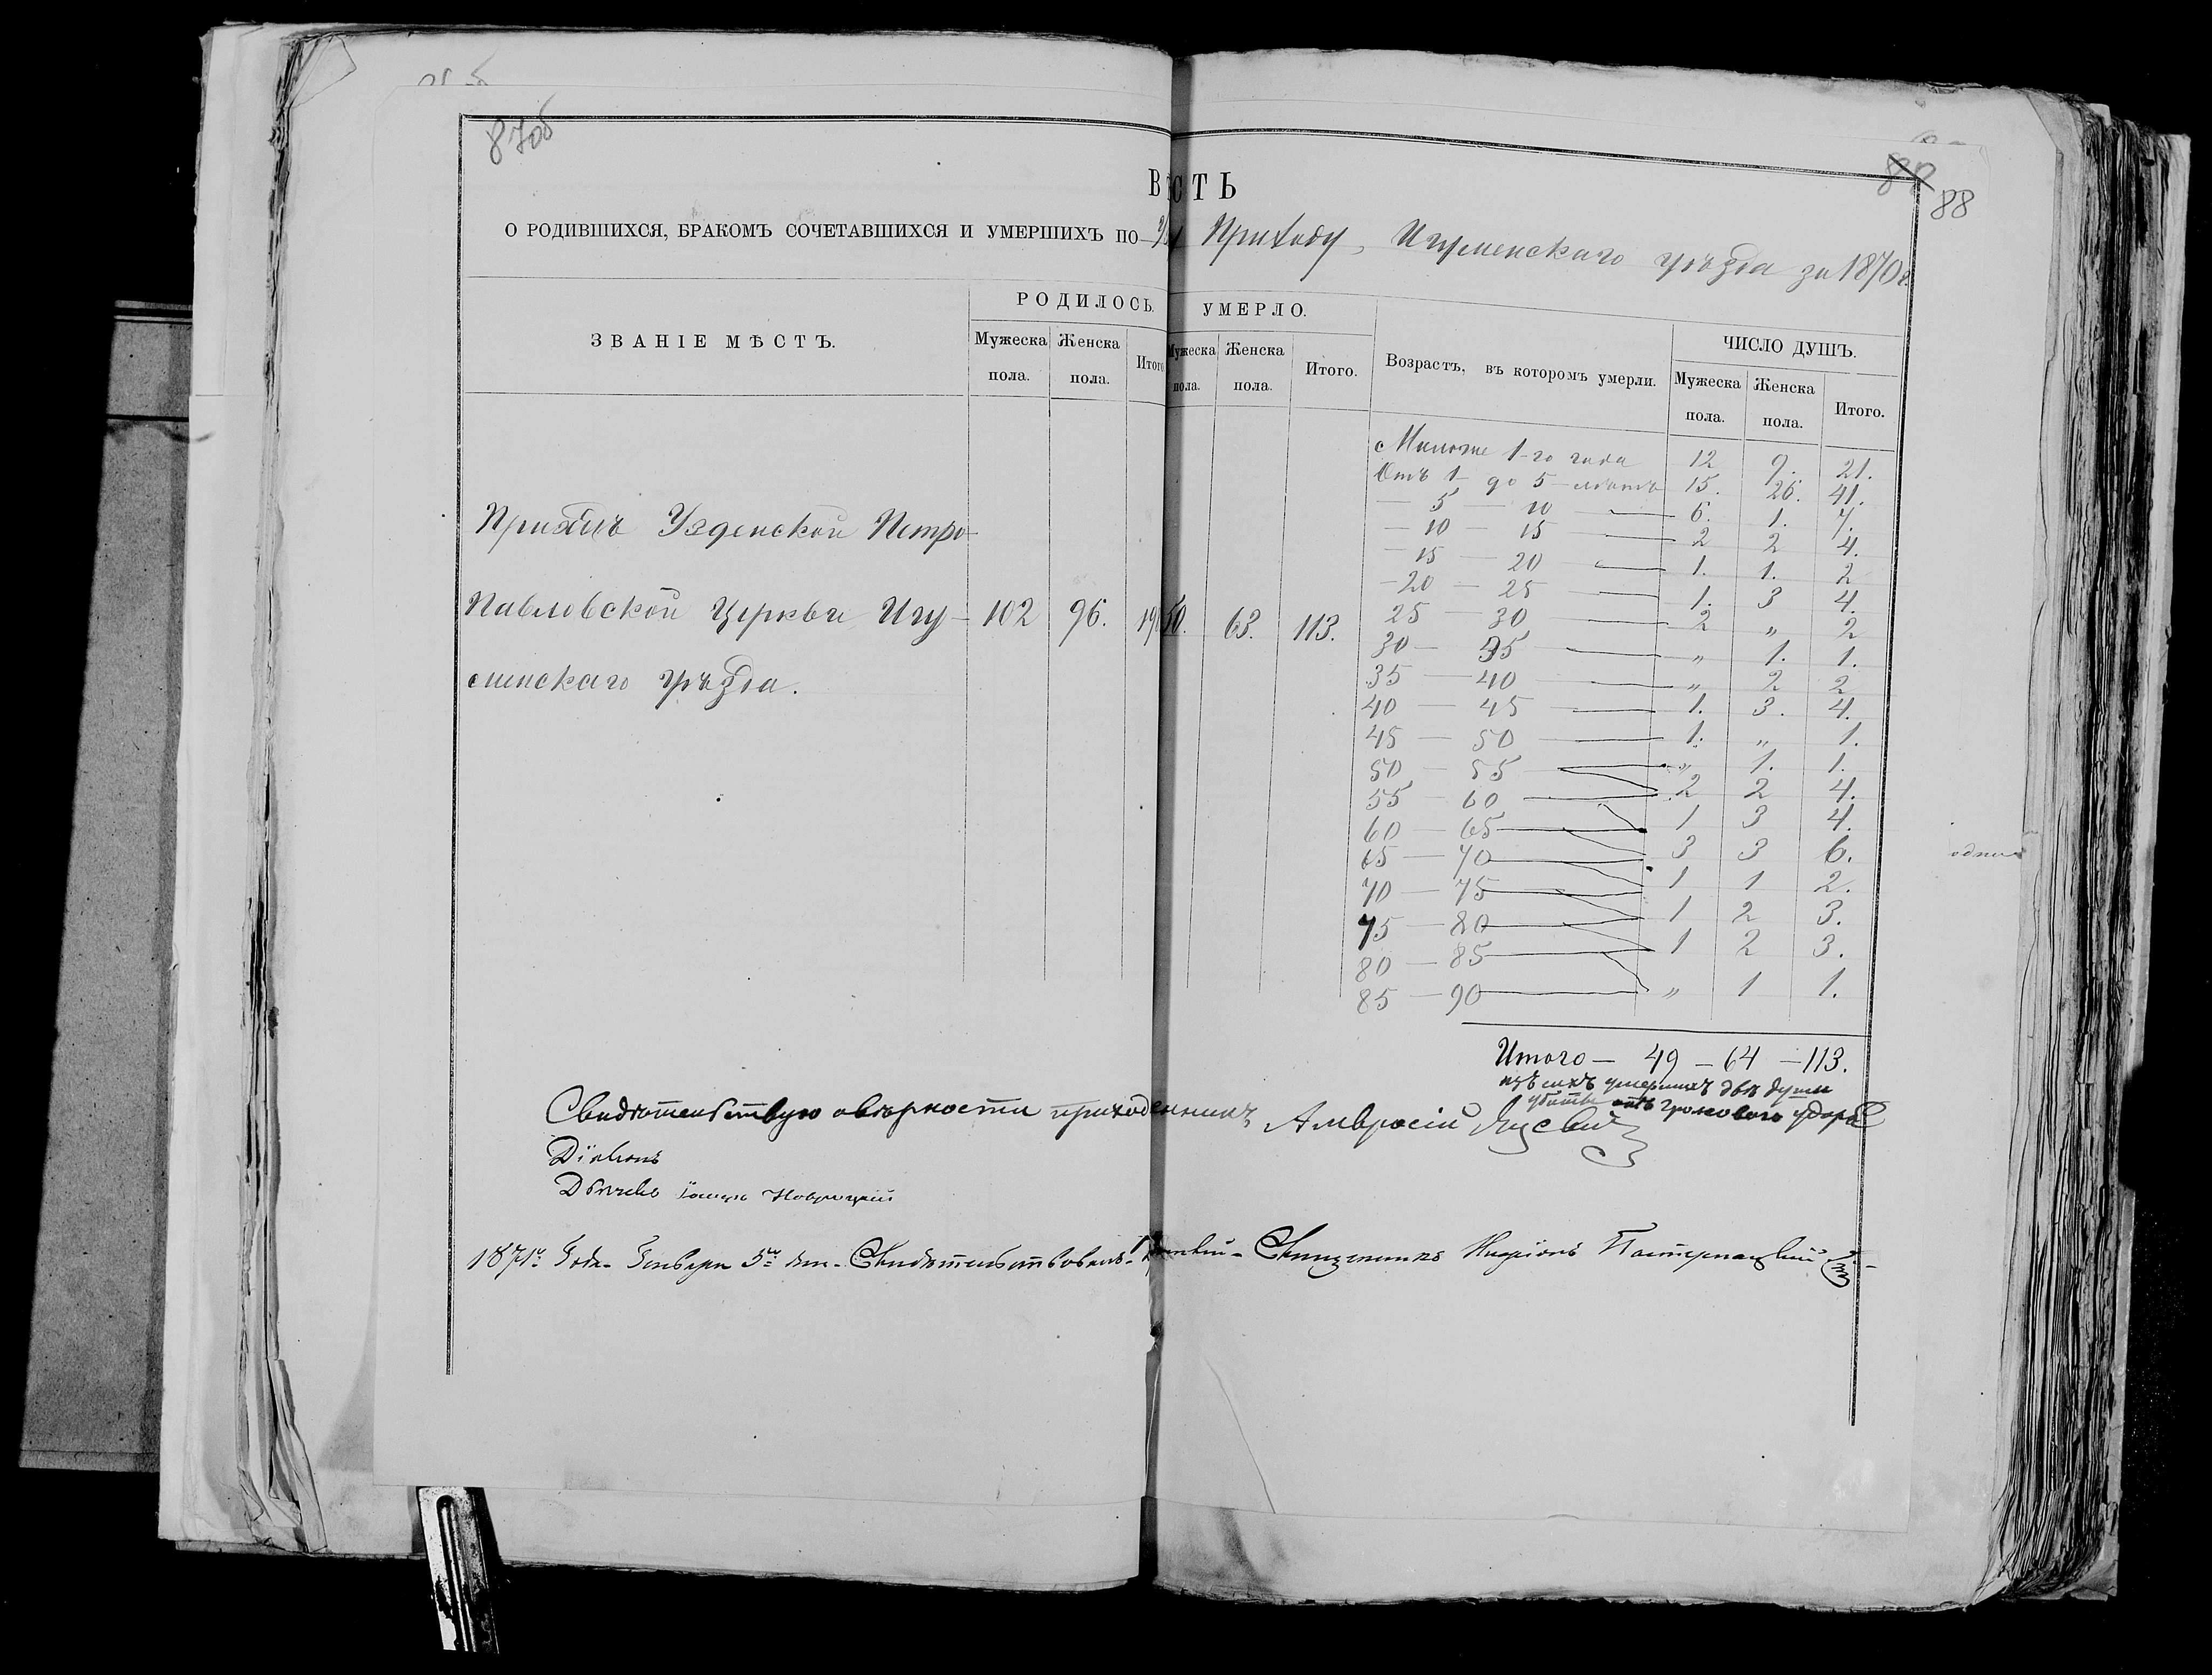 87об
88
ВѢСТЬ
О РОДИВШИХСЯ, БРАКОМЪ СОЧЕТАВШИХСЯ И УМЕРШИХЪ ПО Приходу, Игуменскаго уѣзда за 1870 г.
ЗВАНІЕ МѢСТЪ.
РОДИЛОСЬ.
Мужеска пола.
Женска пола.
Итого
УМЕРЛО.
Мужеска пола.
Женска пола.
Итого.
Возрастъ, въ которомъ умерли.
ЧИСЛО ДУШЪ.
Мужеска пола.
Женска пола.
Итого.
Приходъ Узденской Петро-
Павловской Церкви Игу- 102 96. 50. 63. 113.
менскаго уѣзда.
Моложе 1-го года 12 9. 21.
Отъ 1 до 5 лѣтъ 15. 26. 41.
— 5 — 10 — 6. 1. 7.
— 10 — 15 — 2 2 4.
— 15 — 20 — 1. 1. 2
— 20 — 25 — 1. 3 4.
25 — 30 — 2 „ 2
30 — 35 — „ 1. 1.
35 — 40 — „ 2 2
40 — 45 — 1. 3. 4.
45 — 50 — 1. „ 1.
50 — 55 — „ 1. 1.
55 — 60 — 2 2 4.
60 — 65 — 1 3 4.
65 — 70 — 3 3 6.
70 — 75 — 1 1 2.
75 — 80 — 1 2 3.
80 — 85 — 1 2 3.
85 — 90 — „ 1 1.
Итого — 49 — 64 — 113.
изъ сихъ умершихъ двѣ души
убиты отъ громоваго удара
Свидѣтельствую о вѣрности Амвросій
Діаконъ
Дьячекъ Новицкій
1871 го Года Генваря 5 го дня Свидѣтельствовалъ Священникъ Пастернацкій